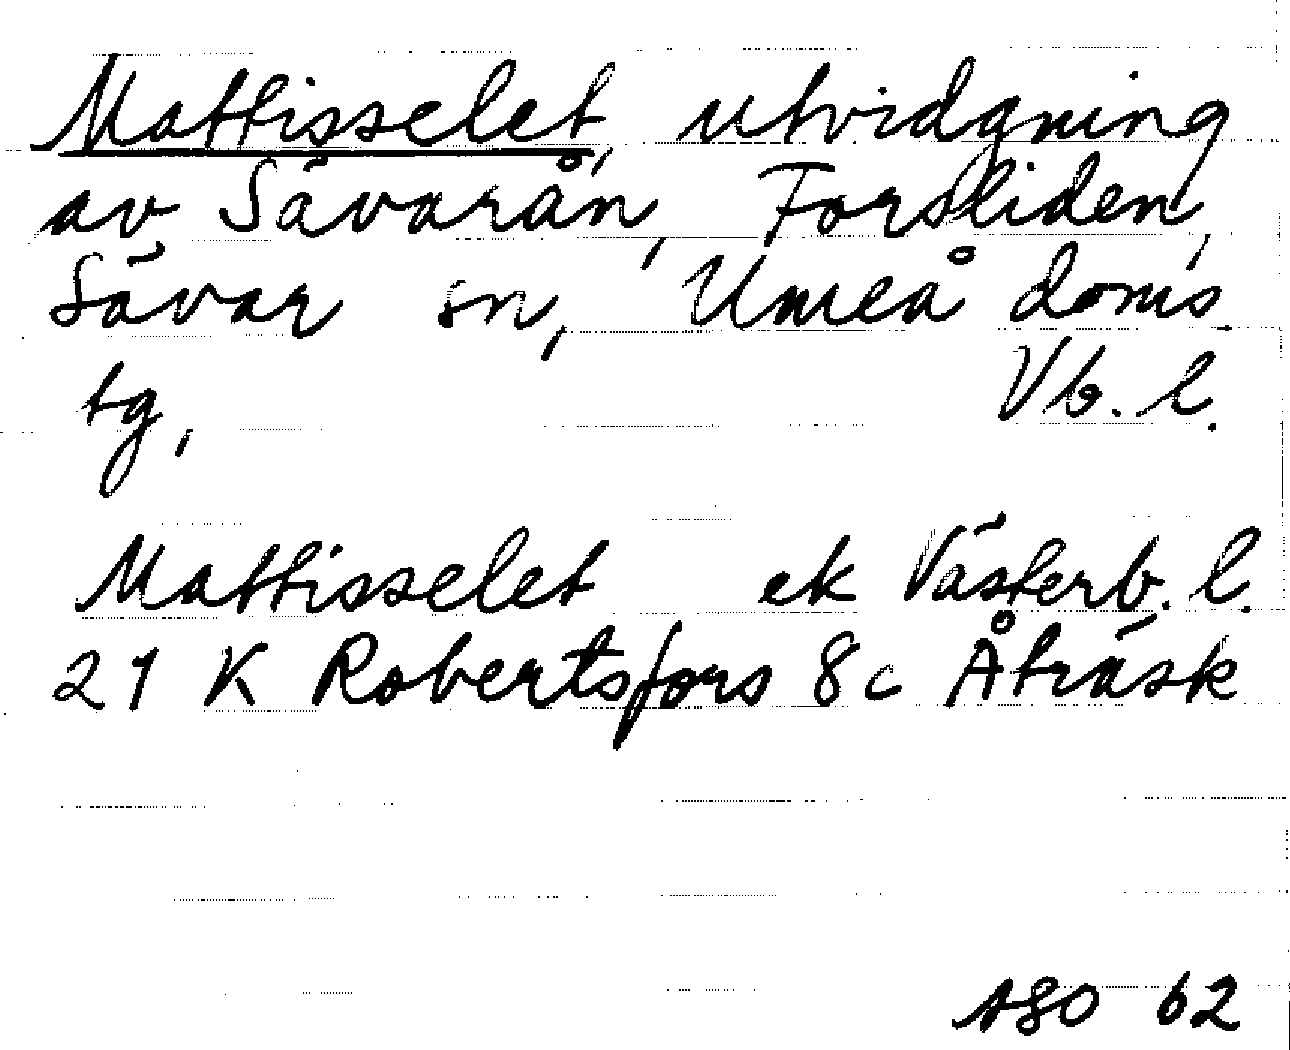 Mattisselet, utvidgning
av Sävarån, Forsliden,
Sävar sn, Umeå doms.
tg, Vb. l.
Mattisselet ek Västerb. l.
21 K Robertsfors 8 c Åträsk
ASO 62